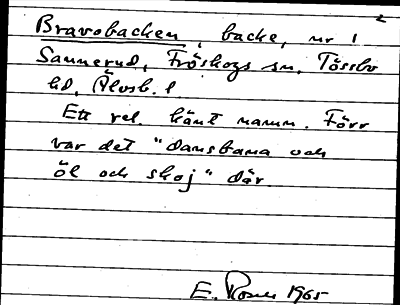 2
Bravobacken, backe, nr 1
Sannerud, Fröskogs sn, Tössbo
hd, Älvsb. l
Ett rel. känt namn. Förr
var det "dansbana och
öl och skoj" där.
E. Rosen 1965